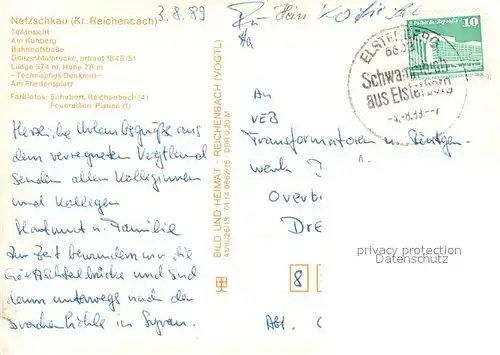 Netzschkau (Kr. Reichenbach)
Teilansicht
Am Kuhberg
Bahnhofstraße
Göltzschtalbrücke, erbaut 1846/51
Länge 574 m, Höhe 78 m
-Technisches Denkmal-
Am Friedensplatz
Farbfotos: Schubert, Reichenbach (4)
Feuereißen, Plauen (1)
3.8.89
Herzliche Urlaubsgrüße aus
dem verregneten Vogtland
senden allen Kolleginnen
und Kollegen
Hartmut u. Familie
Zur Zeit bewundern wir die
Göltzschtalbrücke und sind
dann unterwegs nach der
Drachenhöhle in Syrau.
BILD UND HEIMAT · REICHENBACH (VOGTL)
ELSTERBERG
Schwammbach
aus Elsterberg
10
An
VEB
Transformatoren u. Röntgen-
werk
Overb
Dre
8
Abt.
privacy protection
Datenschutz